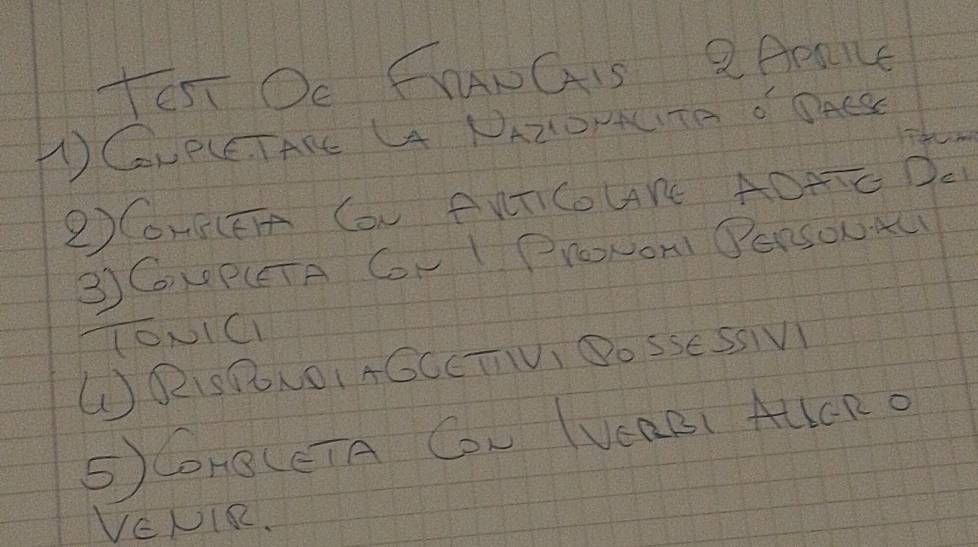 TEST DE FRANCAIS 2 APRILE
1) COMPLETARE LA NAZIONALITA O' PAESE
2) COMPLETA CON ARTICOLARE ADATE DEI
3) COMPLETA CON I PRONOMI PERSONALI
TONICI
4) RISPONDI AGGETTIVI POSSESSIVI
5) COMPLETA CON I VERBI ALLER O
VENIR.